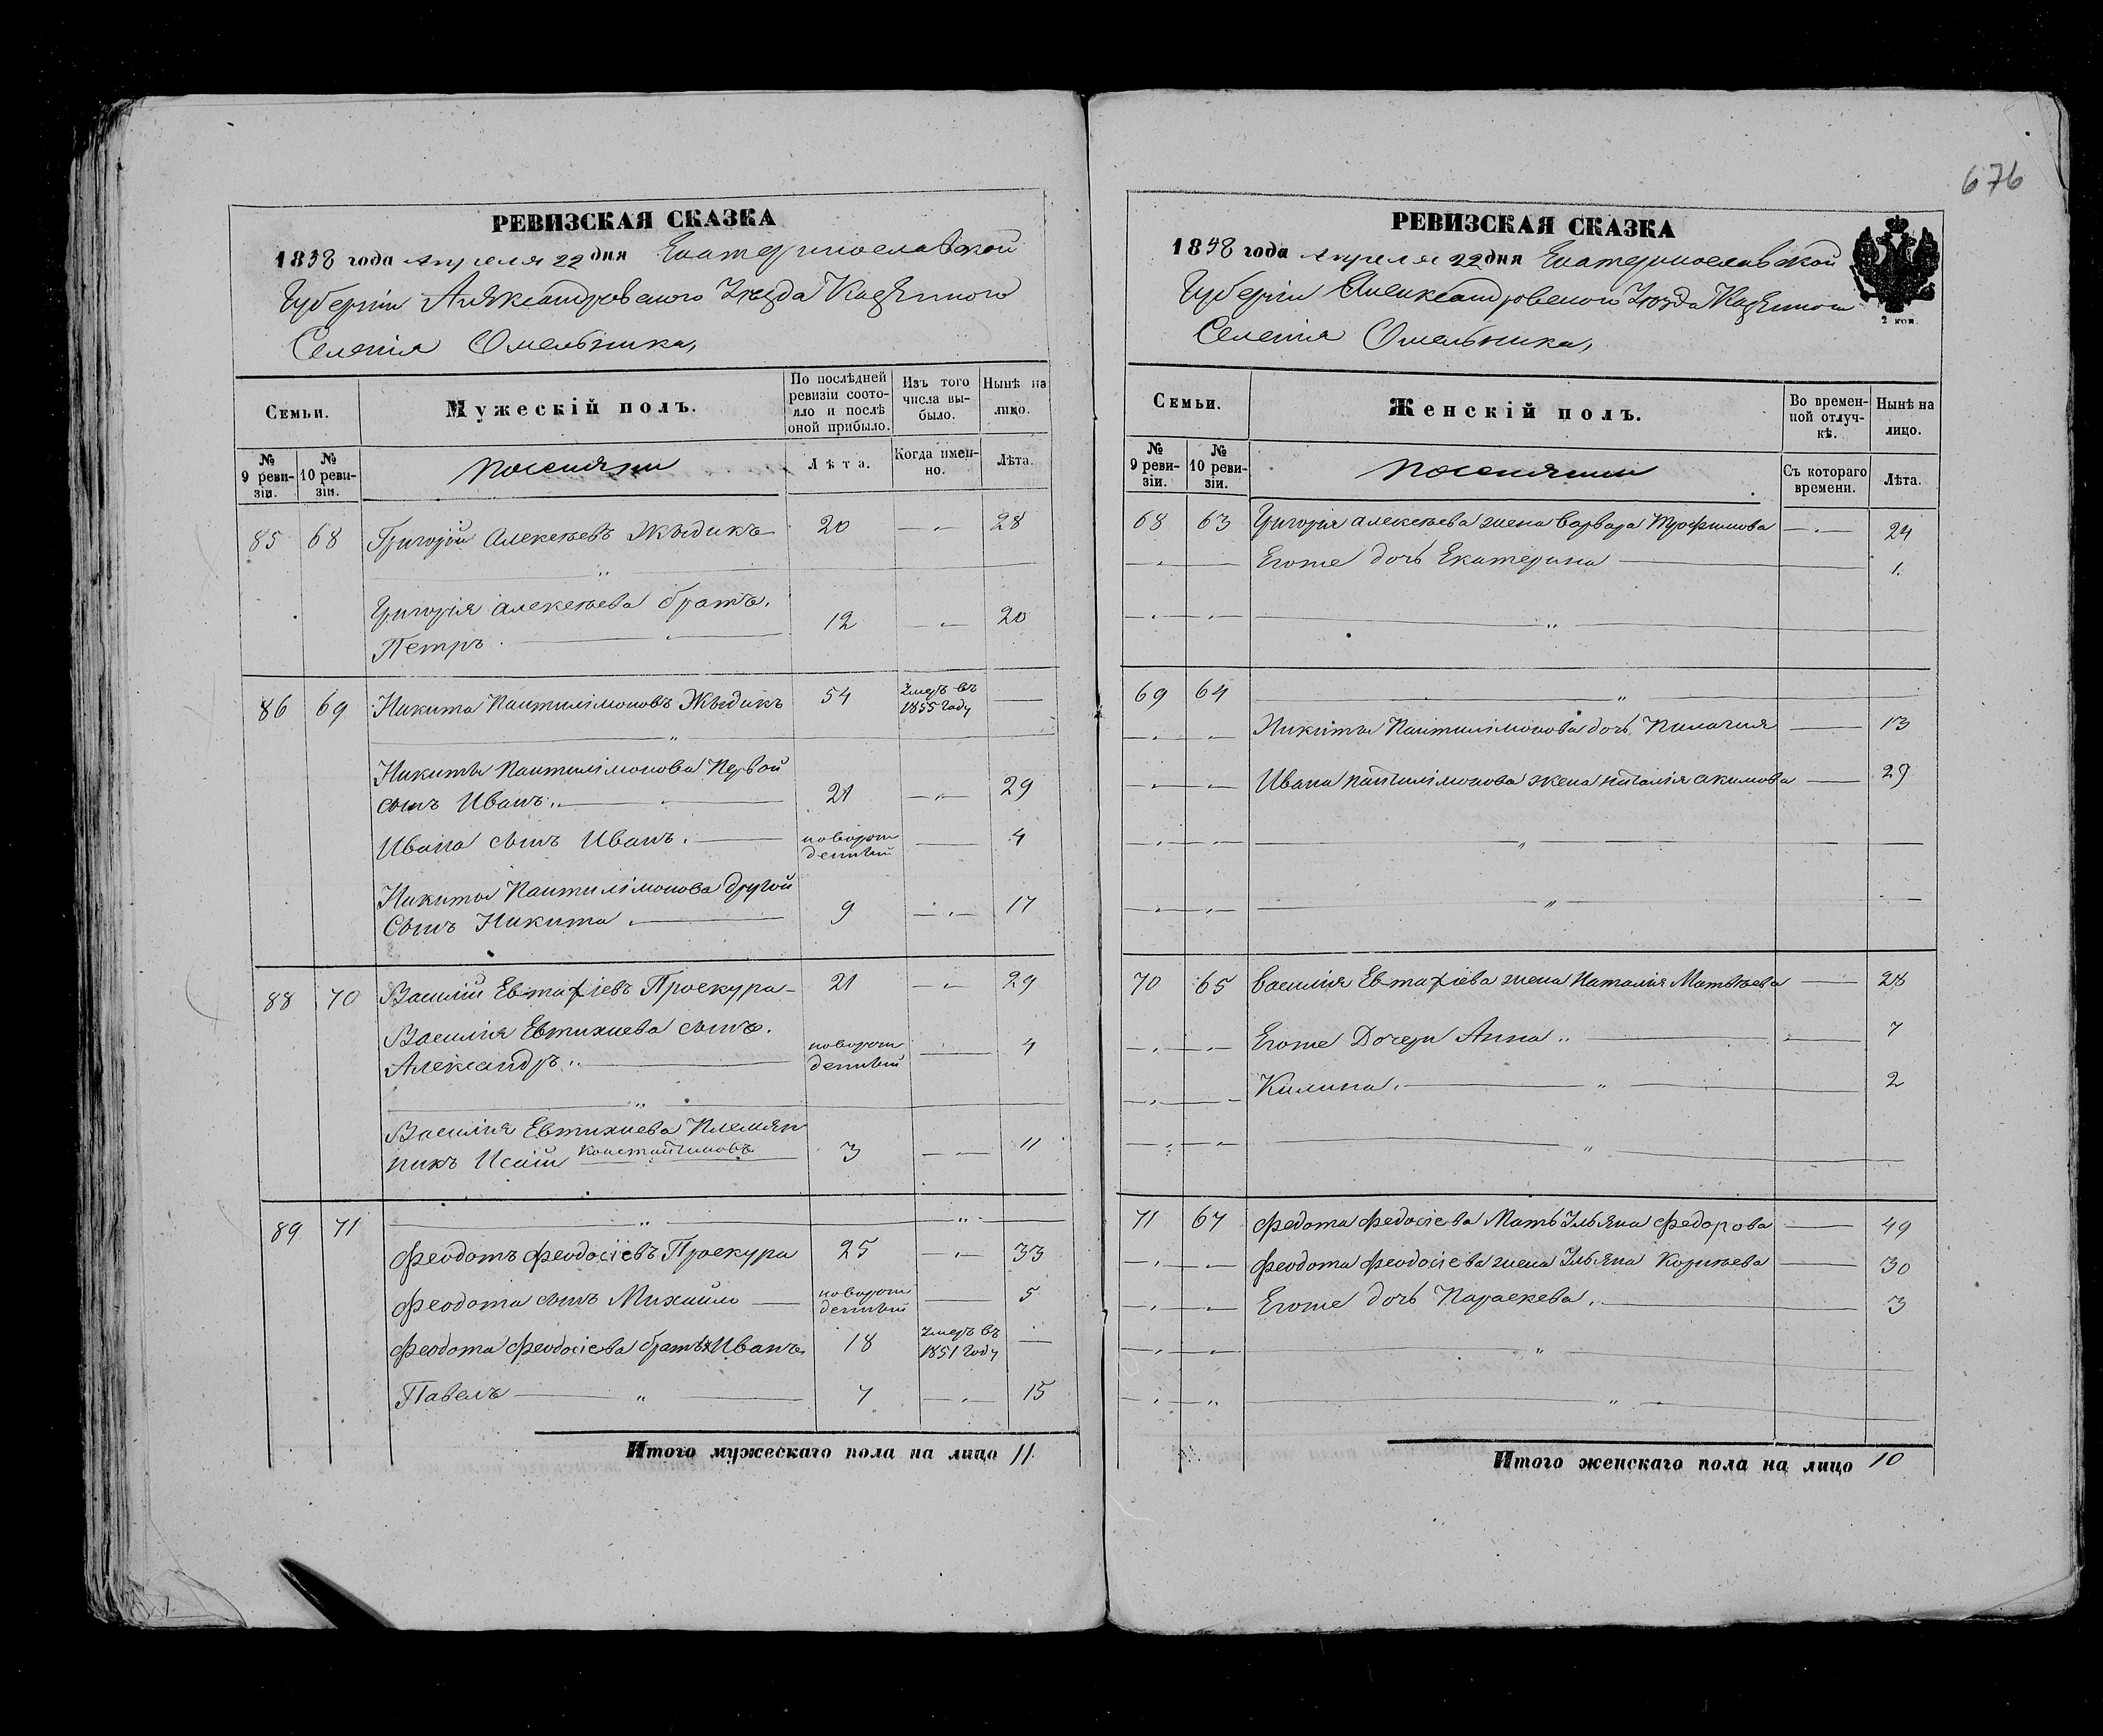 676
РЕВИЗСКАЯ СКАЗКА
1858 года Апреля 22 дня Екатеринославской
Губерніи Александровскаго Уезда Казенного
Селенія Омельника,
Семьи.
Мужескій полъ.
По послѣдней ревизіи состояло и послѣ оной прибыло.
Изъ того числа выбыло.
Нынѣ на лицо.
№ 9 ревизіи.
№ 10 ревизіи.
Поселяни
Лѣта.
Когда именно.
Лѣта.
85 68 Григорій Алексеевъ Жъидикъ 20 — 28
Григорія Алексеева братъ.
Петръ 12 — 20
86 69 Никита Пантилімоновъ Жъидикъ 54 Умеръ въ 1855 году —
Никиты Пантилімонова Первой
сынъ Иванъ 21 — 29
Ивана сынъ Иванъ. новорожденный — 4
Никиты Пантилімонова другой
Сынъ Никита 9 — 17
88 70 Василій Евтихіевъ Проскура 21 — 29
Василія Евтихиева сынъ.
Александръ новорожденный — 4
Василія Евтихиева Племян
никъ Исаій Константиновъ 3 — 11
89 71
Феодотъ Феодосіевъ Проскура 25 — 33
Феодота сынъ Михайло новорожденный — 5
Феодота Феодосіева братья Иванъ 18 умеръ въ 1851 году —
Павелъ 7 — 15
Итого мужескаго пола на лицо 11
РЕВИЗСКАЯ СКАЗКА
1858 года Апреля 22 дня Екатеринославской
Губерніи Александровской Уезда Казенного
Селенія Омельника,
2 коп.
Семьи.
Женскій полъ.
Во временной отлучкѣ.
Нынѣ на лицо.
№ 9 ревизіи.
№ 10 ревизіи.
Поселянки
Съ котораго времени.
Лѣта.
68 63 Григорія Алексеева жена Варвара Трофимова — 24
Егоже дочь Екатерина 1.
69 64
Никиты Пантилімонова дочь Пилагия — 13
Ивана Пантилімонова жена Наталія Акимова — 29
70 65 Василія Евтихіева жена Наталия Матвѣева — 28
Егоже Дочери Анна 7
Килина 2
71 67 Федота Федосіева Мать Ульяна Федорова — 49
Феодота Феодосіева жена Ульяна Корнеева — 30
Егоже дочь Параскева. 3
Итого женскаго пола на лицо 10